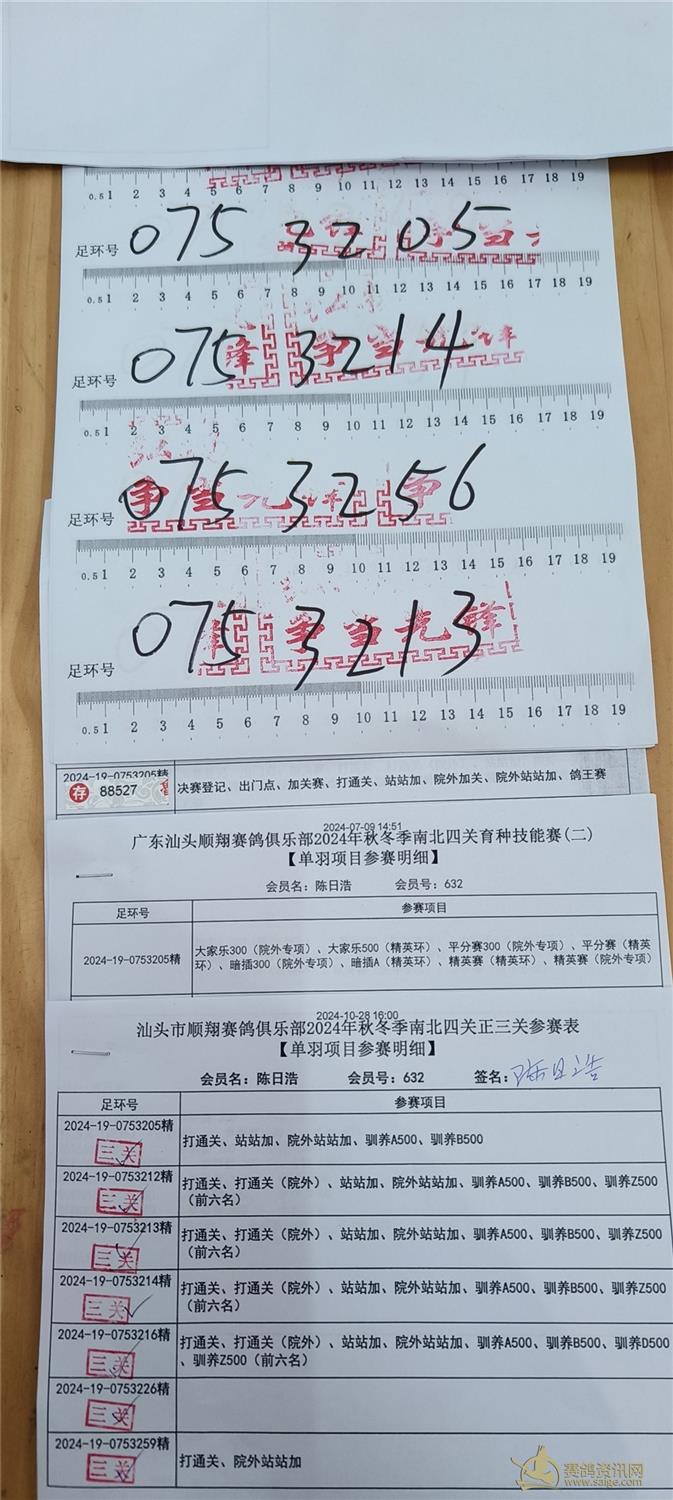 0.5 1 2 3 4 5 6 7 8 9 10 11 12 13 14 15 16 17 18 19
足环号 075 3205
0.5 1 2 3 4 5 6 7 8 9 10 11 12 13 14 15 16 17 18 19
足环号 075 3214
争当
0.5 1 2 3 4 5 6 7 8 9 10 11 12 13 14 15 16 17 18 19
足环号 075 3256
争当 争
0.5 1 2 3 4 5 6 7 8 9 10 11 12 13 14 15 16 17 18 19
足环号 075 3213
争当先锋
0.5 1 2 3 4 5 6 7 8 9 10 11 12 13 14 15 16 17 18 19
2024-19-0753205精
存 88527 决赛登记、出门点、加关赛、打通关、站站加、院外加关、院外站站加、鸽王赛
2024-07-09 14:51
广东汕头顺翔赛鸽俱乐部2024年秋冬季南北四关育种技能赛(二)
【单羽项目参赛明细】
会员名：陈日浩 会员号：632
足环号 参赛项目
2024-19-0753205精 大家乐300（院外专项）、大家乐500（精英环）、平分赛300（院外专项）、平分赛（精英
环）、暗插300（院外专项）、暗插A（精英环）、精英赛（精英环）、精英赛（院外专项）
2024-10-28 16:00
汕头市顺翔赛鸽俱乐部2024年秋冬季南北四关正三关参赛表
【单羽项目参赛明细】
会员名：陈日浩 会员号：632 签名：陈日浩
足环号 参赛项目
2024-19-0753205精
三关 打通关、站站加、院外站站加、驯养A500、驯养B500
2024-19-0753212精 打通关、打通关（院外）、站站加、院外站站加、驯养A500、驯养B500、驯养Z500
三关 （前六名）
2024-19-0753213精 打通关、打通关（院外）、站站加、院外站站加、驯养A500、驯养B500、驯养Z500
三关 （前六名）
2024-19-0753214精 打通关、打通关（院外）、站站加、院外站站加、驯养A500、驯养B500、驯养Z500
三关 （前六名）
2024-19-0753216精 打通关、打通关（院外）、站站加、院外站站加、驯养A500、驯养B500、驯养D500
三关 、驯养Z500（前六名）
2024-19-0753226精
三关
2024-19-0753259精
三关 打通关、院外站站加
赛鸽资讯网
www.saige.com